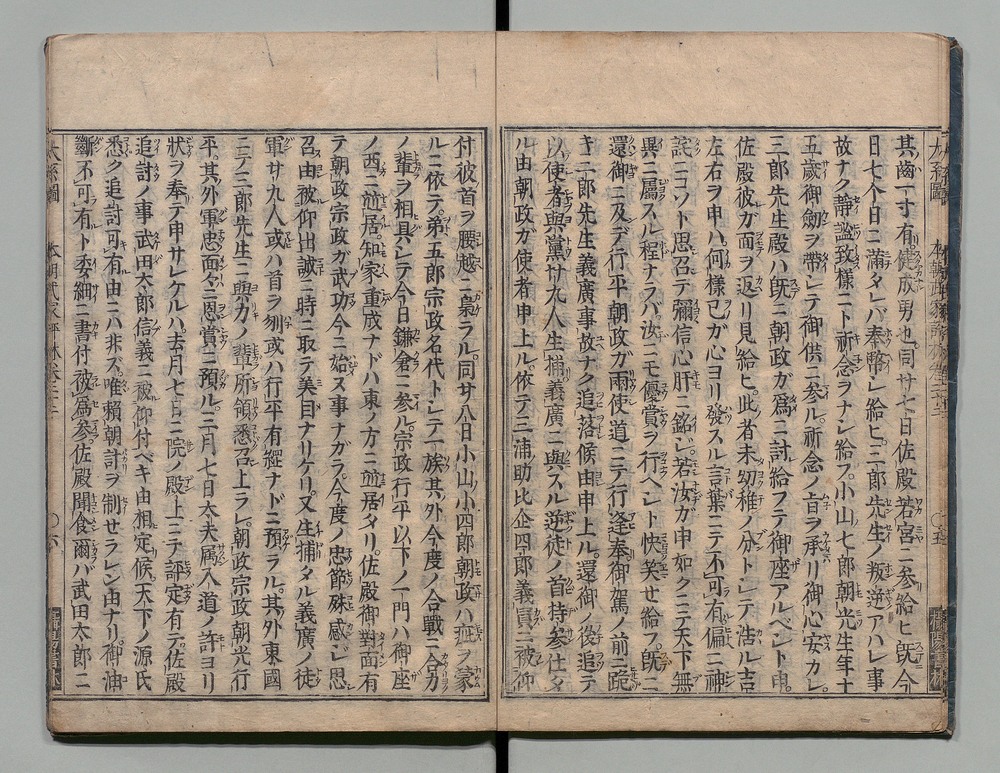 其齒一寸有使成男也同廿七日佐殿若宮ニ参給ヒ既今
日七个日ニ滿タレバ奉幣シ給ヒ三郎先生ノ叛逆アハレ事
故ナク静謐致様ニト祈念ヲナシ給フ小山七郎朝光生年十
五歳御劔ヲ帶シテ御供ニ参ル祈念ノ旨ヲ承リ御心安カレ
三郎先生殿ハ既ニ朝政ガ為ニ討レ給フテ御座アルベシト申
佐殿彼ガ面ヲ返リ見給ヒ此者未幼稚ノ分トシテ浩ル吉
左右ヲ申ハ何様己ガ心ヨリ發スル言葉ニテ不可有偏ニ神
詫ニコソト思召テ彌信心肝ニ銘ジ若汝ガ申如クニテ天下無
異ニ屬スル程ナラバ汝ニモ優賞ヲ行ヘシト快笑セ給フ既ニ
還御ニ及デ行平朝政ガ両使道ニテ行逢奉御駕ノ前ニ跪
キ三郎先生義廣事故ナク追落候由申上ル還御ノ後追テ
以使者與黨廿九人生捕義廣ニ與スル逆徒ノ首持参仕タ
ル由朝政ガ使者申上ル依テ三浦助比企四郎義員ニ被仰
付彼首ヲ腰越ニ梟ラル同廿八日小山小四郎朝政ハ疵ヲ蒙
ルニ依テ第五郎宗政名代トシテ一族其外今度ノ合戰ニ合力
ノ輩ヲ相具シテ今日鎌倉ニ参ル宗政行平以下ノ一門ハ御座
ノ西ニ並居知家重成ナドハ東ノ方ニ並居タリ佐殿御對面有
テ朝政宗政ガ武功今ニ始ヌ事ナガラ今度ノ忠節殊感ジ思
召由被仰出誠ニ時ニ取テ美目ナリケリ又生捕タル義廣ノ徒
軍廿九人或ハ首ヲ刎或ハ行平有經ナドニ預ラル其外東國
ニテ三郎先生ニ與力ノ輩所領悉召上ラレ朝政宗政朝光行
平其外軍忠面々ニ恩賞ニ預ル三月七日大夫属入道ノ許ヨリ
狀ヲ奉テ申サレケルハ去月七日ニ院ノ殿上ニテ評定有テ佐殿
追討ノ事武田太郎信義ニ被仰付ベキ由相定候天下ノ源氏
悉ク追討可有由ニハ非ズ唯賴朝計ヲ制セラレン由ナリ御油
斷不可有ト委細ニ書付被為参佐殿聞食爾バ武田太郎ニ